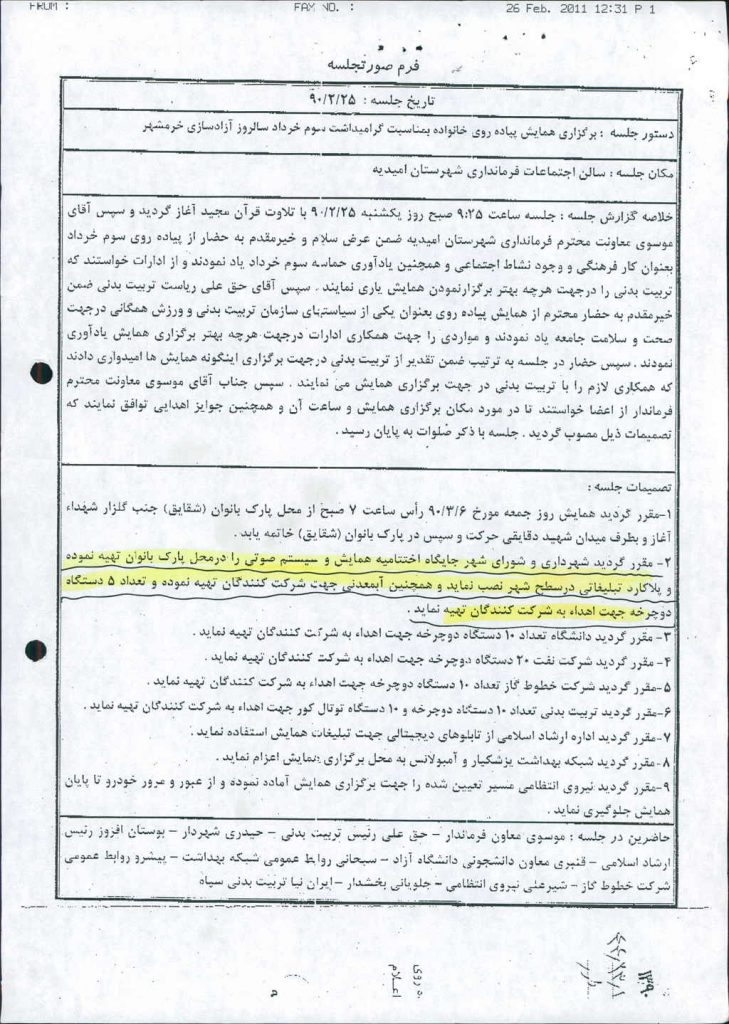 FROM :
FAX NO. :
26 Feb. 2011 12:31 P 1
فرم صورتجلسه
تاریخ جلسه : ۹۰/۲/۲۵
دستور جلسه : برگزاری همایش پیاده روی خانواده بمناسبت گرامیداشت سوم خرداد سالروز آزادسازی خرمشهر
مکان جلسه : سالن اجتماعات فرمانداری شهرستان امیدیه
خلاصه گزارش جلسه : جلسه ساعت ۹:۲۵ صبح روز یکشنبه ۹۰/۲/۲۵ با تلاوت قرآن مجید آغاز گردید و سپس آقای
موسوی معاونت محترم فرمانداری شهرستان امیدیه ضمن عرض سلام و خیرمقدم به حضار از پیاده روی سوم خرداد
بعنوان کار فرهنگی و وجود نشاط اجتماعی و همچنین یادآوری حماسه سوم خرداد یاد نمودند و از ادارات خواستند که
تربیت بدنی را درجهت هرچه بهتر برگزارنمودن همایش یاری نمایند . سپس آقای حق علی ریاست تربیت بدنی ضمن
خیرمقدم به حضار محترم از همایش پیاده روی بعنوان یکی از سیاستهای سازمان تربیت بدنی و ورزش همگانی درجهت
صحت و سلامت جامعه یاد نمودند و مواردی را جهت همکاری ادارات درجهت هرچه بهتر برگزاری همایش یادآوری
نمودند . سپس حضار در جلسه به ترتیب ضمن تقدیر از تربیت بدنی درجهت برگزاری اینگونه همایش ها امیدواری دادند
که همکاری لازم را با تربیت بدنی در جهت برگزاری همایش می نمایند . سپس جناب آقای موسوی معاونت محترم
فرماندار از اعضا خواستند تا در مورد مکان برگزاری همایش و ساعت آن و همچنین جوایز اهدایی توافق نمایند که
تصمیمات ذیل مصوب گردید . جلسه با ذکر صلوات به پایان رسید .
تصمیمات جلسه :
۱-مقرر گردید همایش روز جمعه مورخ ۹۰/۳/۶ رأس ساعت ۷ صبح از محل پارک بانوان (شقایق) جنب گلزار شهداء
آغاز و بطرف میدان شهید دقایقی حرکت و سپس در پارک بانوان (شقایق) خاتمه یابد .
۲- مقرر گردید شهرداری و شورای شهر جایگاه اختتامیه همایش و سیستم صوتی را درمحل پارک بانوان تهیه نموده
و پلاکارد تبلیغاتی درسطح شهر نصب نماید و همچنین آبمعدنی جهت شرکت کنندگان تهیه نموده و تعداد ۵ دستگاه
دوچرخه جهت اهداء به شرکت کنندگان تهیه نماید .
۳- مقرر گردید دانشگاه تعداد ۱۰ دستگاه دوچرخه جهت اهداء به شرکت کنندگان تهیه نماید .
۴- مقرر گردید شرکت نفت ۲۰ دستگاه دوچرخه جهت اهداء به شرکت کنندگان تهیه نماید .
۵-مقرر گردید شرکت خطوط گاز تعداد ۱۰ دستگاه دوچرخه جهت اهداء به شرکت کنندگان تهیه نماید .
۶-مقرر گردید تربیت بدنی تعداد ۱۰ دستگاه دوچرخه و ۱۰ دستگاه توتال کور جهت اهداء به شرکت کنندگان تهیه نماید .
۷-مقرر گردید اداره ارشاد اسلامی از تابلوهای دیجیتالی جهت تبلیغات همایش استفاده نماید .
۸-مقرر گردید شبکه بهداشت پزشکیار و آمبولانس به محل برگزاری همایش اعزام نماید .
۹-مقرر گردید نیروی انتظامی مسیر تعیین شده را جهت برگزاری همایش آماده نموده و از عبور و مرور خودرو تا پایان
همایش جلوگیری نماید .
حاضرین در جلسه : موسوی معاون فرماندار – حق علی رئیس تربیت بدنی – حیدری شهردار – بوستان افروز رئیس
ارشاد اسلامی – قنبری معاون دانشجوئی دانشگاه آزاد – سبحانی روابط عمومی شبکه بهداشت – پیشرو روابط عمومی
شرکت خطوط گاز – شیرعلی نیروی انتظامی – جلویانی بخشدار – ایران نیا تربیت بدنی سپاه
۱۳۹۰